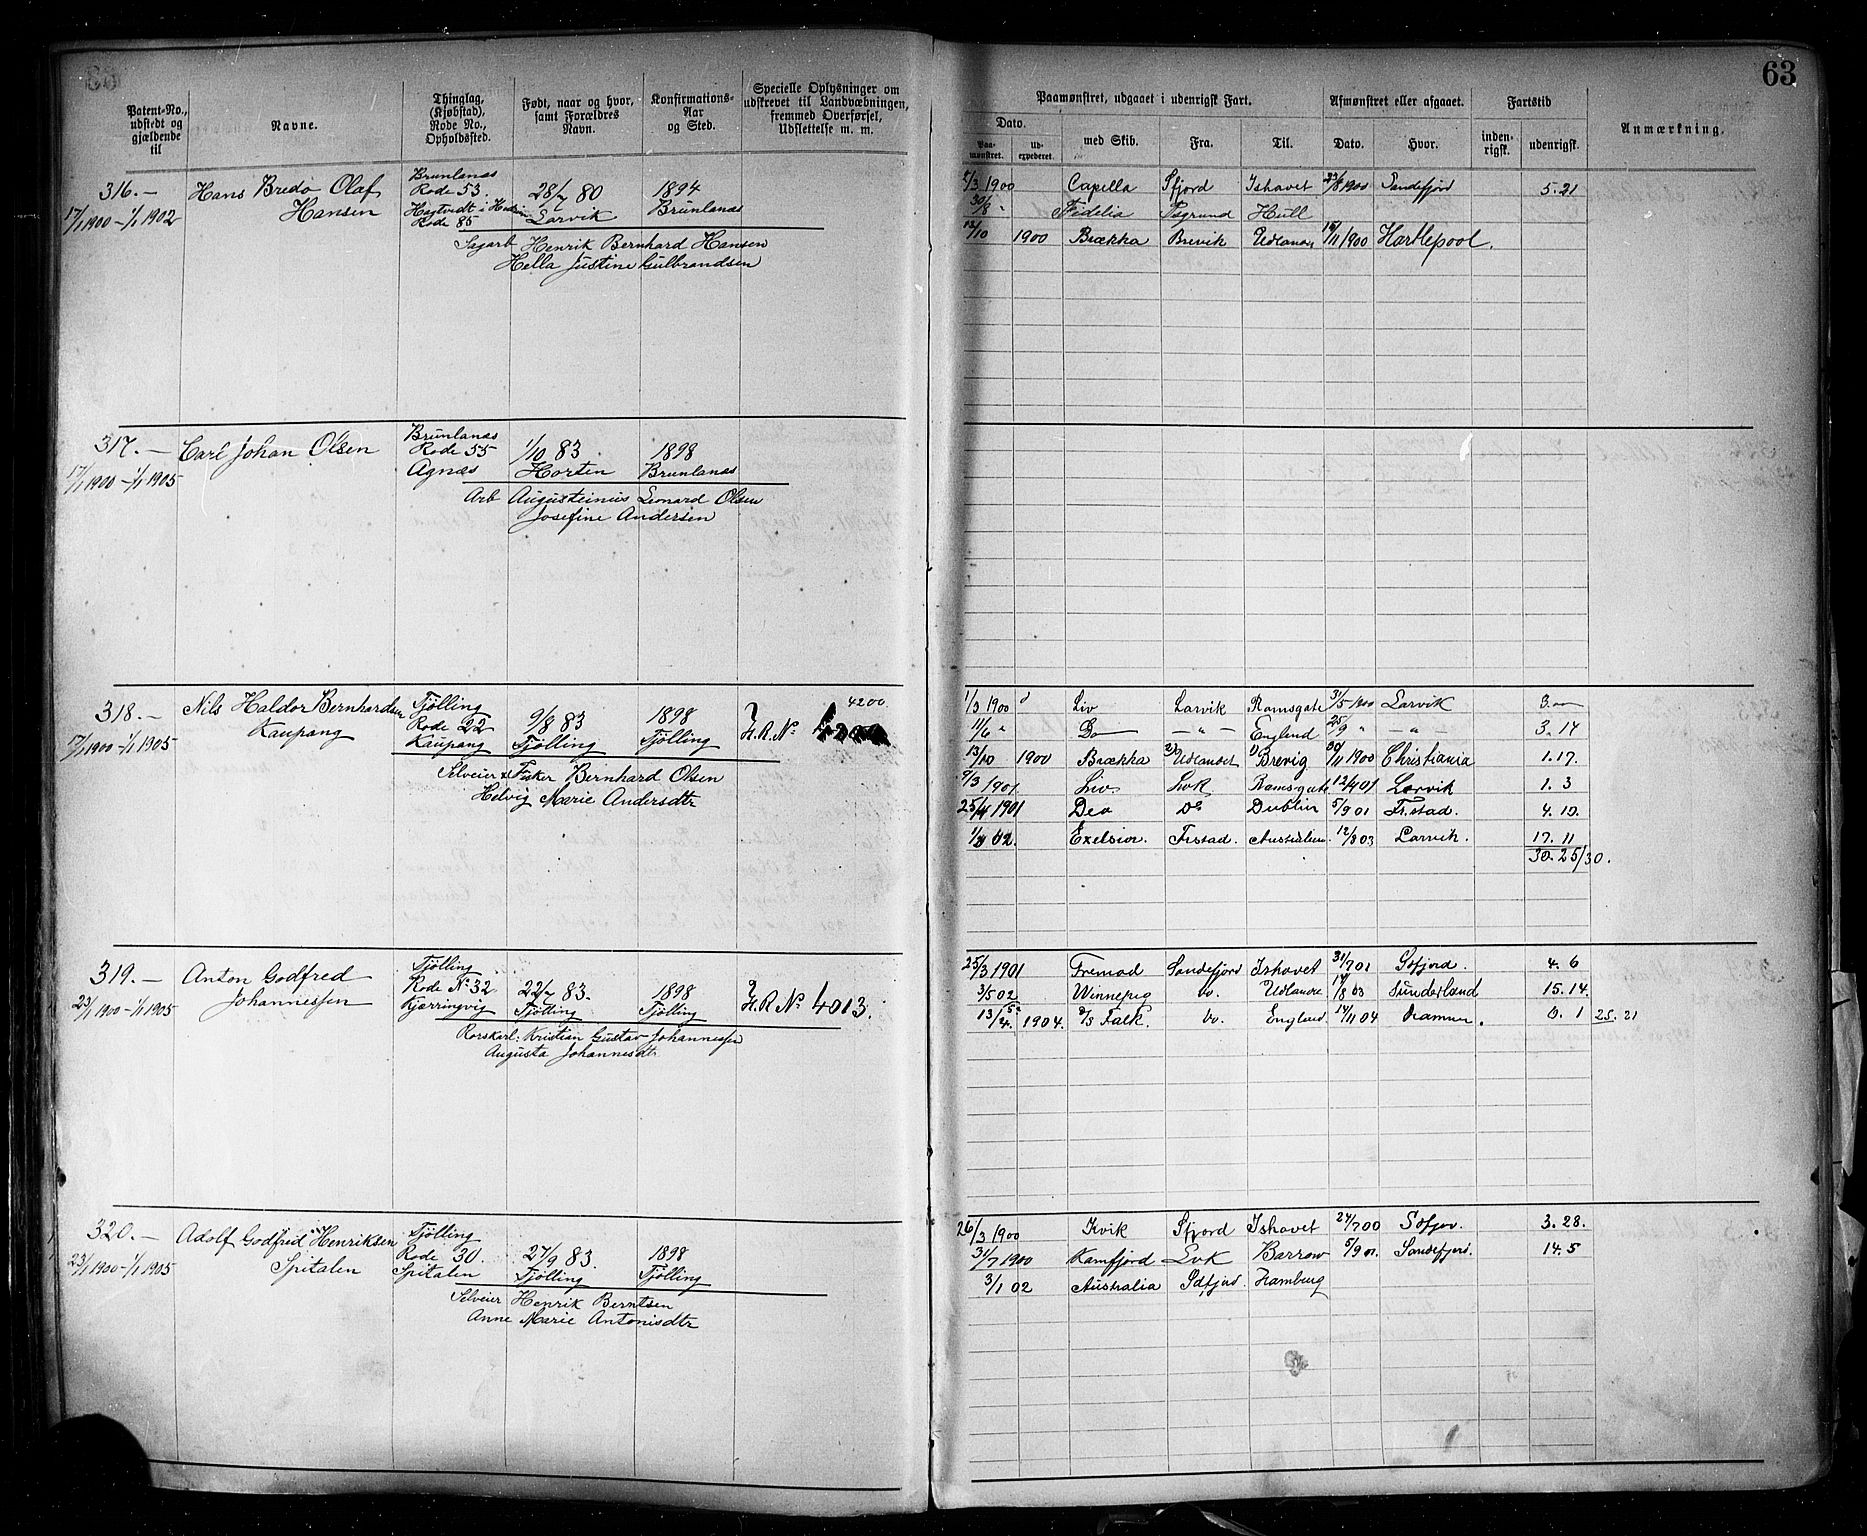 63
Patent-No., udstedt og gjældende til
Navne.
Thinglag, (Kjøbstad), Rode No., Opholdssted.
Født, naar og hvor, samt Forældres Navn.
Konfirmations-Aar og Sted.
Specielle Oplysninger om udskrevet til Landvæbningen, fremmed Overførsel, Udslettelse m. m.
Paamønstret, udgaaet i udenrigsk Fart.
Afmønstret eller afgaaet.
Fartstid
Anmærkning.
Dato.
Paa-mønstret.
Ud-expederet.
med Skib.
Fra.
Til.
Dato.
Hvor.
inden-rigsk.
udenrigsk.
316.- Hans Bredo Olaf Brunlanæs
Hansen Rode 53. 28/7 80 1894
17/1 1900 - 1/1 1902 Rode 85 Larvik Brunlanæs
Sagarb Henrik Bernhard Hansen
Hella Justine Gulbrandsen
5/3 1900 Capella Sfjord Ishavet 23/8 1900 Sandefjord 5.21
30/8 " Fidelia Psgrund Hull
12/10 1900 Brækka Brevik Udlandet 19/11 1900 Hartlepool.
317.- Carl Johan Olsen Brunlanæs
Rode 55 1/10 83 1898
17/1 1900 - 1/1 1905 Agnæs Horten Brunlanæs
Arb Augusteinius Leonard Olsen
Josefine Andersen
318.- Nils Haldor Bernhardsen Tjølling 4200
Kaupang Rode 22 9/8 83 1898
17/1 1900 - 1/1 1905 Kaupang Tjølling Tjølling H.R.No
Selveier & Fisker Bernhard Olsen
Helvig Marie Andersdtr
1/3 1900 Liv Larvik Ramsgate 31/5 1900 Larvik 3.—
11/6 " Do — " — England 25/9 " — " — 3.14
13/10 1900 Brækka Udlandet Brevig 30/11 1900 Christiania 1.17.
9/3 1901. Liv Lvk Ramsgate 12/4 01 Larvik 1.3
25/4 1901 Dea Do Dublin 5/9 01 Fr.stad. 4.10.
02. Exelsior. Frstad. Australien. 12/8 03 Larvik. 17.11
30.25/30.
319.- Anton Godfred Tjølling
Johannessen Rode No 32 22/7 83. 1898
23/1 1900 - 1/1 1905 Kjærringvig Tjølling Tjølling H.R.No 4013.
Rorskarl: Kristian Gustav Johannessen
Augusta Johannesdtr
25/3 1901 Fremad Sandefjord Ishavet 31/7 01 Sdfjord. 4.6
3/5 02 Winnepeg Do. Udlandet 17/8 03 Sunderland 15.14.
13/4. 1904. D/S Falk. Do. England. 14/11 04 Drammen. 0.1 25.21
320.- Adolf Godfred Henriksen Tjølling
Spitalen Rode 30. 27/9 83. 1898
23/1 1900 - 1/1 1905 Spitalen Tjølling Tjølling
Selveier Henrik Berntsen
Anne Marie Antonisdtr
26/3 1900 Kvik Sfjord Ishavet 27/7 00 Sdfjor. 3.28.
31/7 1900 Kamfjord Lvk Barrow 5/9 01. Sandefjord. 14.5
3/1 02 Australia Sdfjord. Hamburg